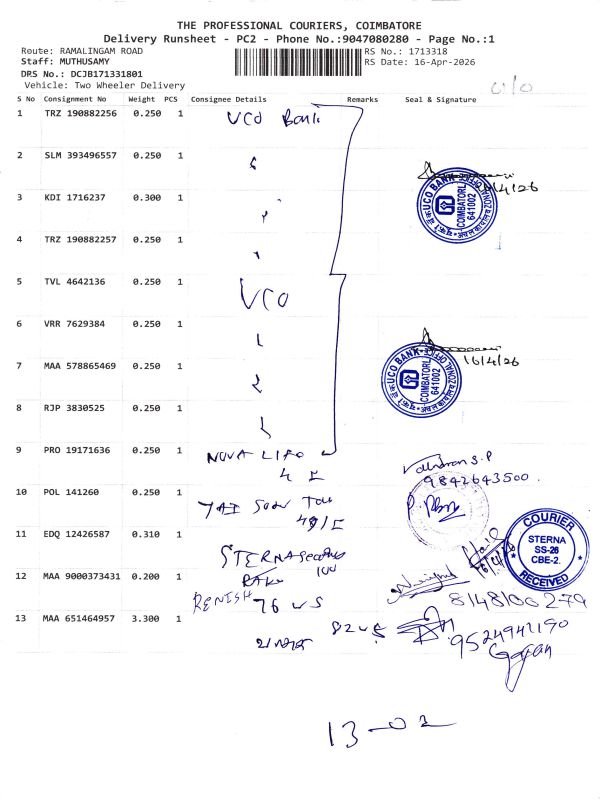 THE PROFESSIONAL COURIERS, COIMBATORE
Delivery Runsheet - PC2 - Phone No.:9047080280 - Page No.:1
Route: RAMALINGAM ROAD
RS No.: 1713318
Staff: MUTHUSAMY
RS Date: 16-Apr-2026
DRS No.: DCJB171331801
Vehicle: Two Wheeler Delivery
S No Consignment No Weight PCS Consignee Details Remarks Seal & Signature
1 TRZ 190882256 0.250 1 UCO Bank
2 SLM 393496557 0.250 1
3 KDI 1716237 0.300 1
UCO BANK COIMBATORE 641002
4 TRZ 190882257 0.250 1
5 TVL 4642136 0.250 1 UCO
6 VRR 7629384 0.250 1
16/4/26
7 MAA 578865469 0.250 1
UCO BANK COIMBATORE 641002
8 RJP 3830525 0.250 1
9 PRO 19171636 0.250 1 NOVA LIFO
9842643500
10 POL 141260 0.250 1
11 EDQ 12426587 0.310 1 STERNA
COURIER STERNA SS-26 CBE-2. RECEIVED
12 MAA 9000373431 0.200 1
RENISH 76
8148100279
13 MAA 651464957 3.300 1
9524942190
13-02